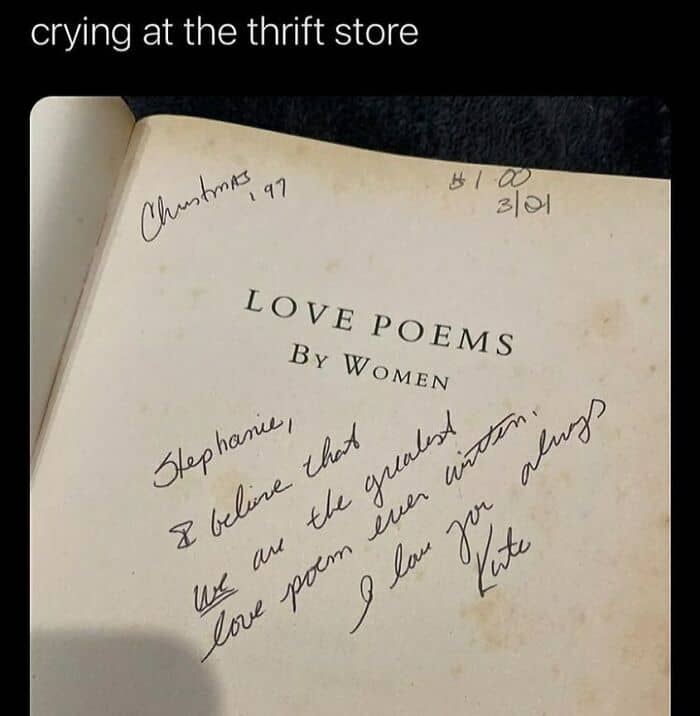 crying at the thrift store
Christmas, '97
$1.00
3/21
LOVE POEMS
BY WOMEN
Stephanie,
I believe that
We are the greatest
love poem ever written.
I love you always
Kate